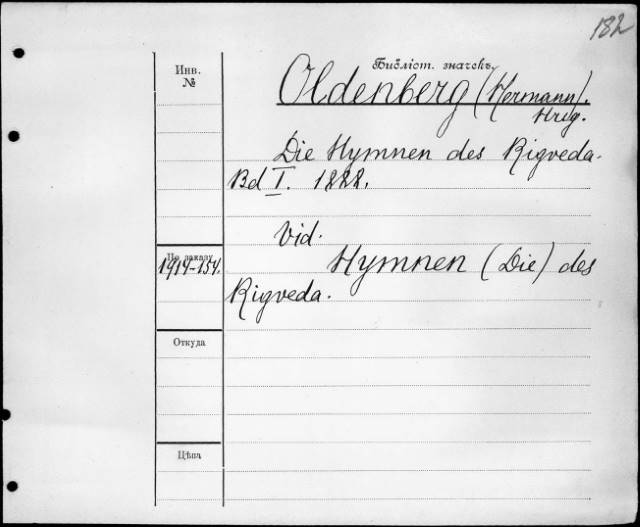 182
Библіот. значекъ.
Инв.
№
Oldenberg (Hermann).
Hrsg.
Die Hymnen des Rigveda.
Bd I. 1888.
Vid.
Hymnen (Die) des
Rigveda.
По заказу
1914-154.
Откуда
Цѣна